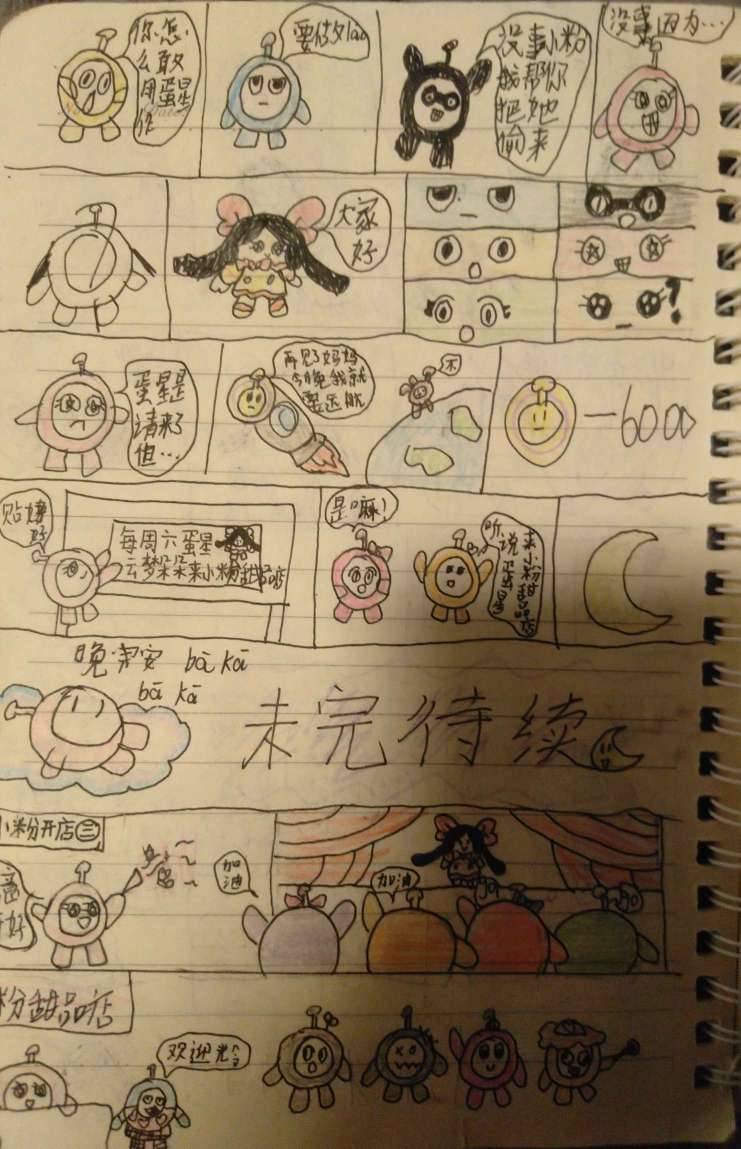 你怎
么敢
用蛋星
作
要做
没事小粉
我帮你
把她
偷来
没事因为…
大家
好
?
蛋星是
请来了
但…
再见了妈妈
今晚我就
要远航
不
—6000
贴好
每周六蛋星
云梦朵朵来小粉甜品店
是嘛!
听说
蛋星
来小粉甜品店
晚安 bā kā
bā kā
未完待续
小粉开店㊂
加
油
加油
go
go
好
粉甜品店
欢迎光